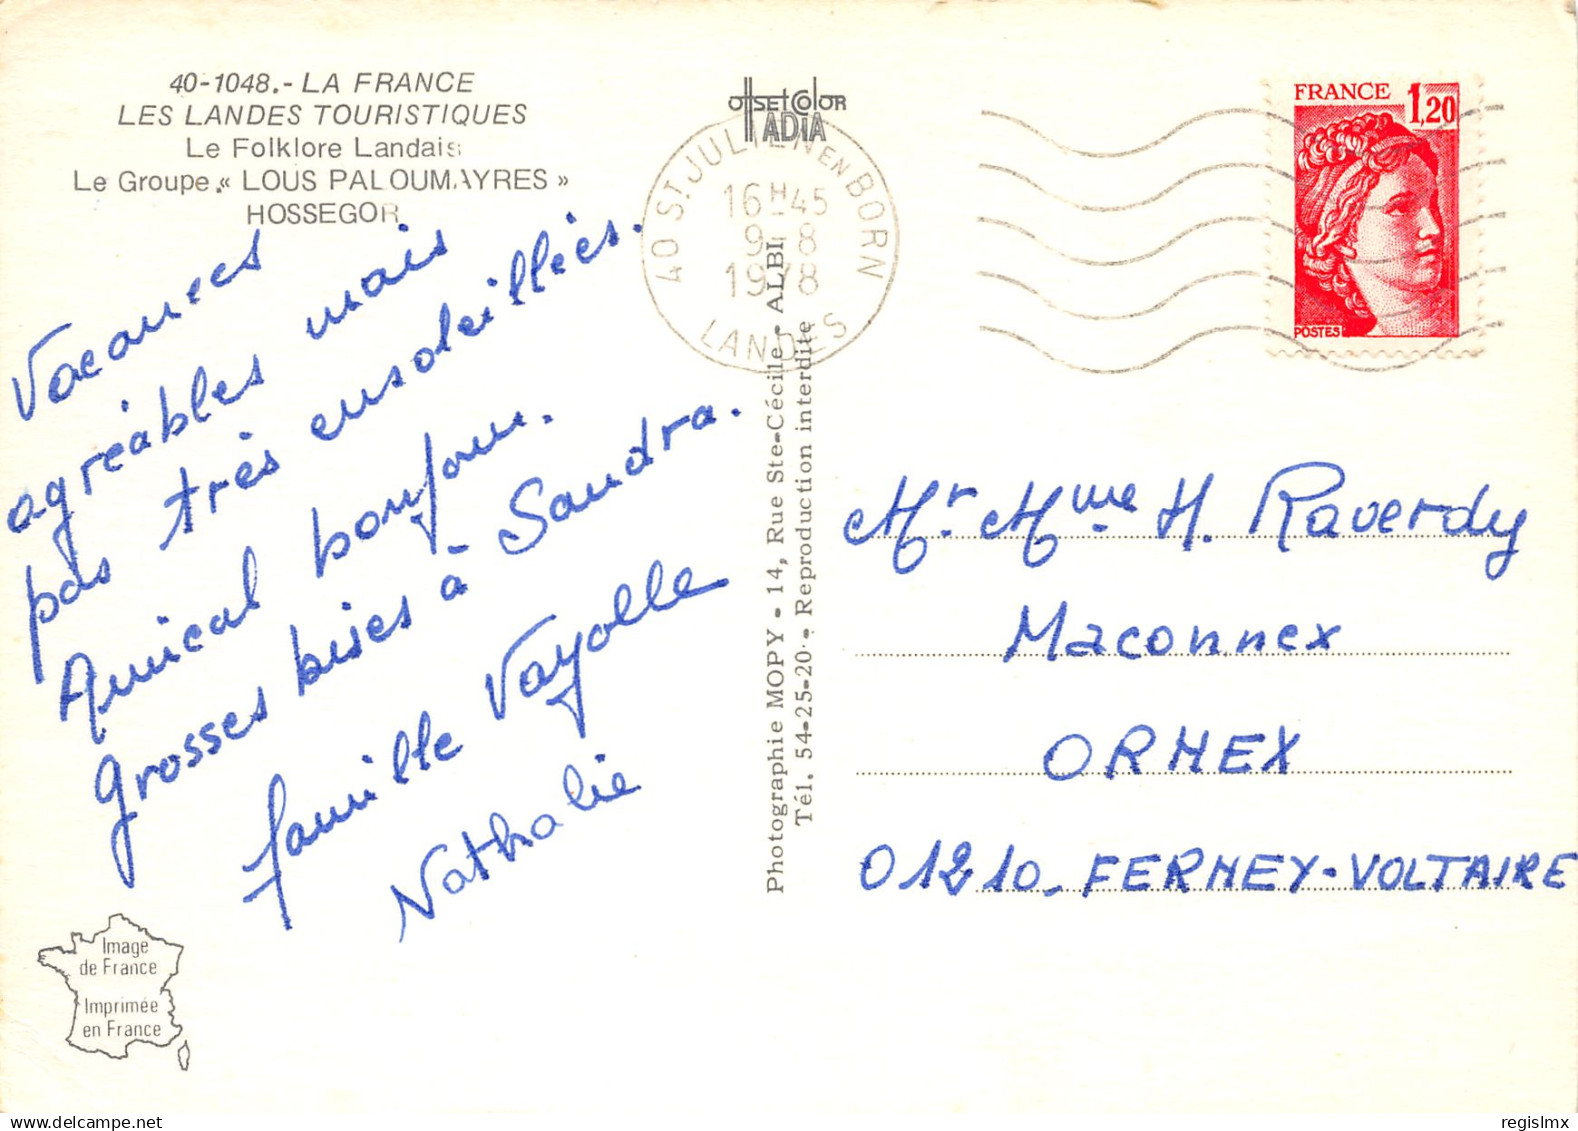 40-1048.- LA FRANCE
LES LANDES TOURISTIQUES
Le Folklore Landais
Le Groupe « LOUS PALOUMAYRES »
HOSSEGOR
Vacances
agréables mais
pas très ensoleillées.
Amical bonjour.
Grosses bises à Sandra.
famille Vayolle
Nathalie
Image
de France
Imprimée
en France
offset color
ADIA
40 ST. JULIEN EN BORN
16H45
9-8
1978
LANDES
Photographie MOPY - 14, Rue Ste-Cécile - ALBI
Tél. 54-25-20 - Reproduction interdite
FRANCE 1,20
POSTES
Mr. Mme H. Raverdy
Maconnex
ORNEX
01210. FERNEY-VOLTAIRE
regislmx